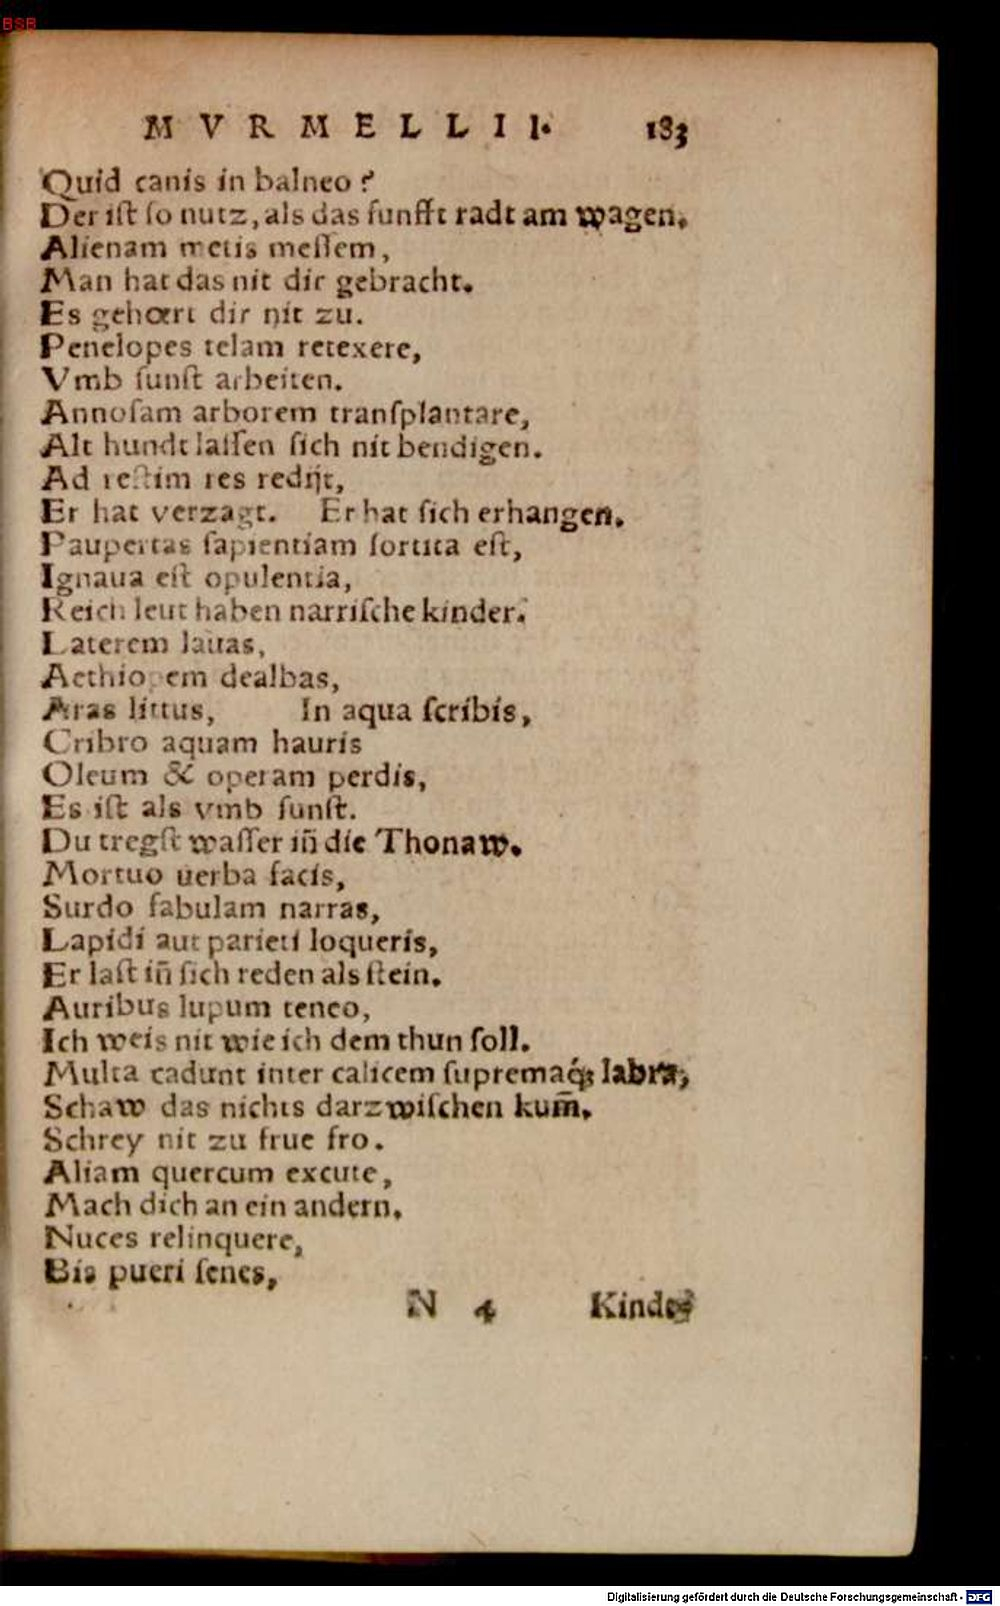 BSB
MVRMELLII. 183
Quid canis in balneo?
Der iſt ſo nutz, als das funfft radt am wagen.
Alienam metis meſſem,
Man hat das nit dir gebracht.
Es gehœrt dir nit zu.
Penelopes telam retexere,
Vmb ſunſt arbeiten.
Annoſam arborem tranſplantare,
Alt hundt laiſſen ſich nit bendigen.
Ad reſtim res redijt,
Er hat verzagt. Er hat ſich erhangen.
Paupertas ſapientiam ſortita eſt,
Ignaua eſt opulentia,
Reich leut haben narriſche kinder.
Laterem lauas,
Aethiopem dealbas,
Aras littus, In aqua ſcribis,
Cribro aquam hauris
Oleum & operam perdis,
Es iſt als vmb ſunſt.
Du tregſt waſſer in̄ die Thonaw.
Mortuo uerba facis,
Surdo fabulam narras,
Lapidi aut parieti loqueris,
Er laſt in̄ ſich reden als ſtein.
Auribus lupum teneo,
Ich weis nit wie ich dem thun ſoll.
Multa cadunt inter calicem ſupremaq́; labra,
Schaw das nichts darzwiſchen kum̄.
Schrey nit zu frue fro.
Aliam quercum excute,
Mach dich an ein andern.
Nuces relinquere,
Bis pueri ſenes,
N 4 Kinder
Digitalisierung gefördert durch die Deutsche Forschungsgemeinschaft - DFG